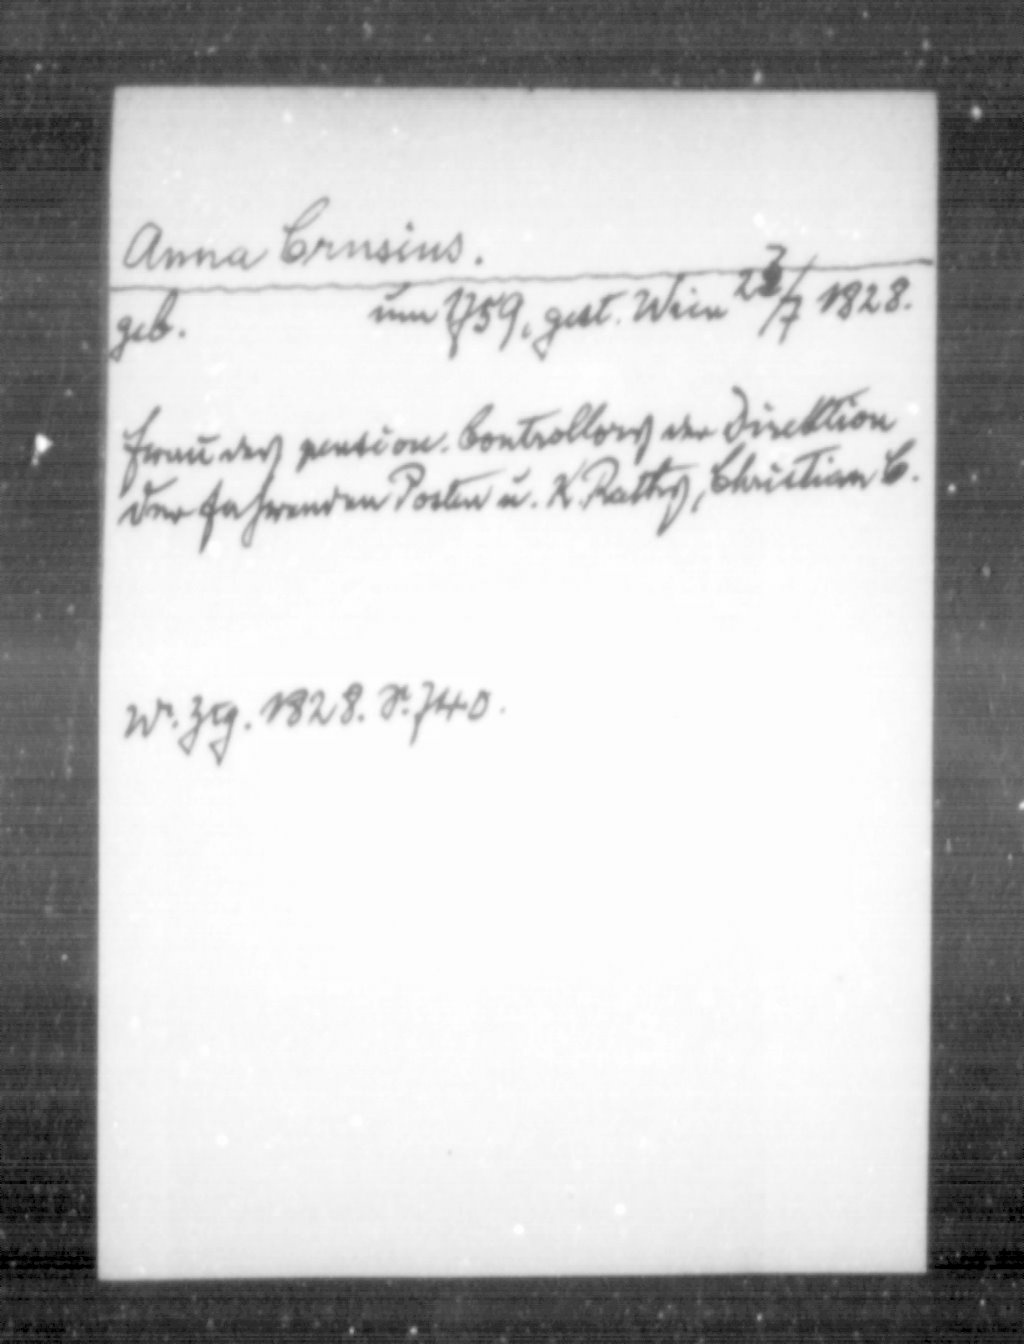 Anna Crusius.
geb. um 1759, gest. Wien 23/7 1828.
Frau des pension. Controllors der Direktion
der fahrenden Posten u. K. Raths, Christian C.
Wr. Ztg. 1828. S. 740.